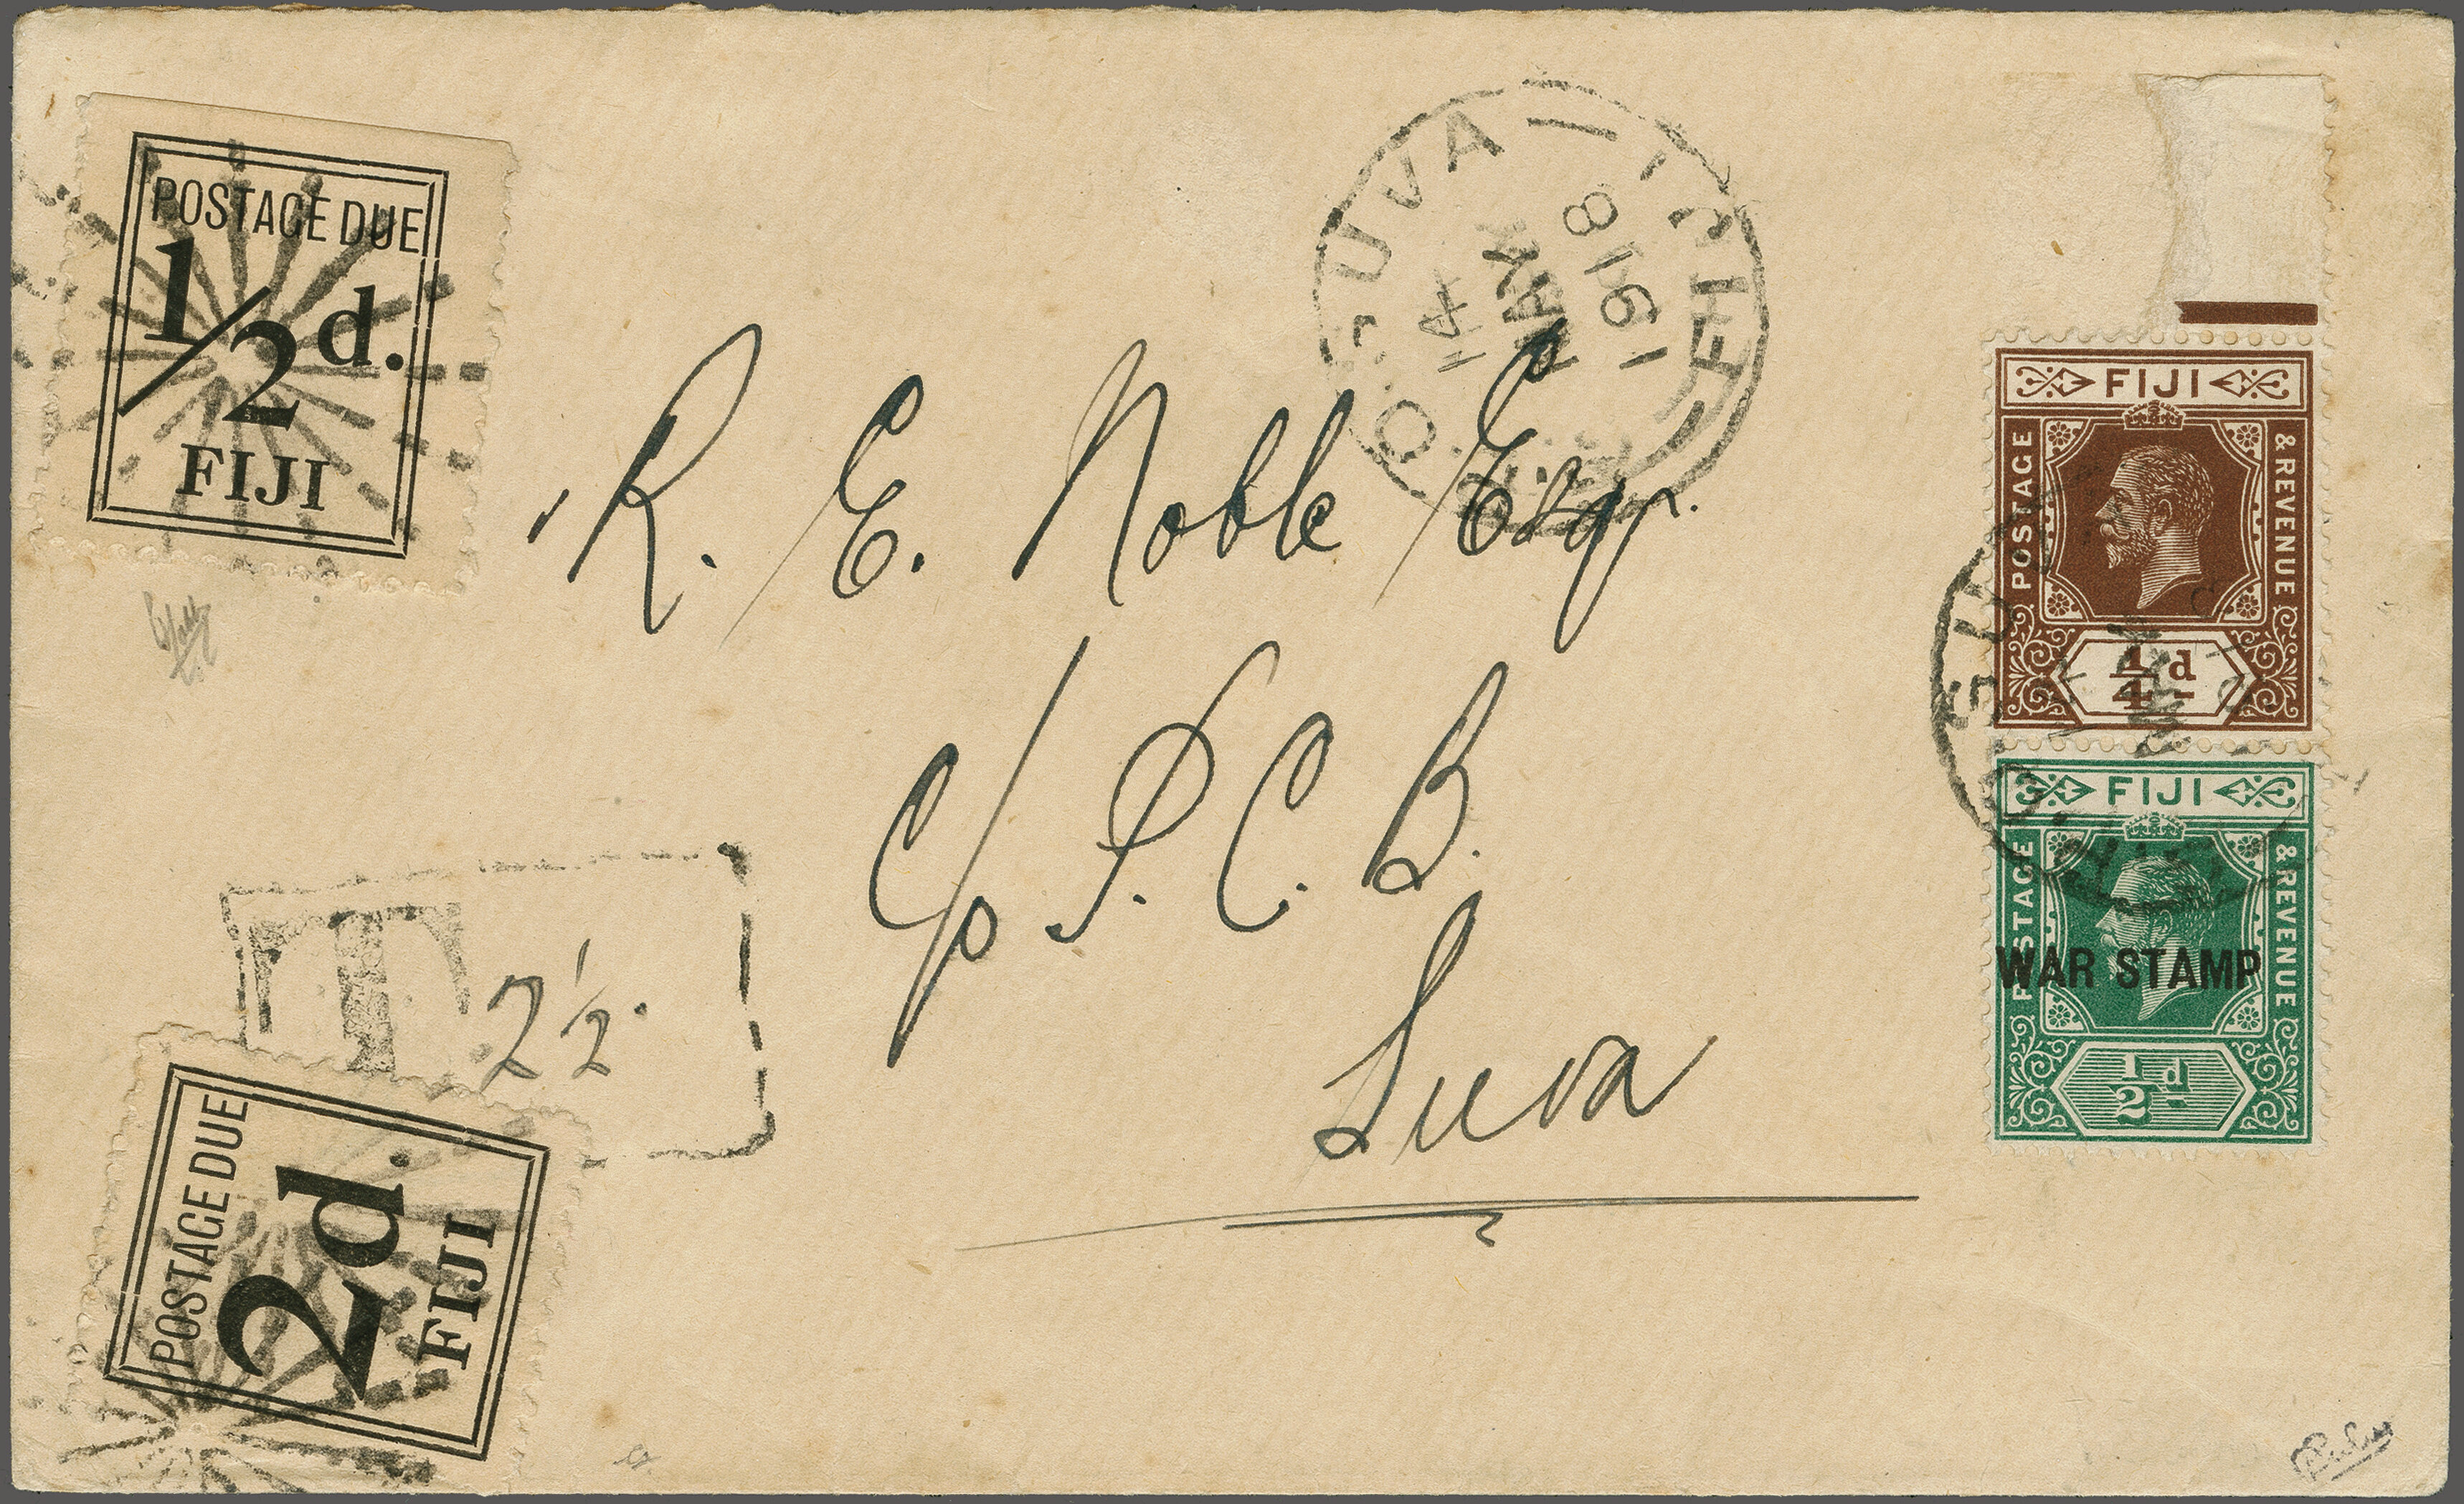 POSTAGE DUE
1/2d.
FIJI
G.P.O. SUVA — FIJI
14
MAY
1918
R. E. Noble Esqr.
C/o P. C. B.
Suva
FIJI
POSTAGE & REVENUE
1/4d
FIJI
POSTAGE & REVENUE
WAR STAMP
1/2d
SUVA
T 2 1/2.
POSTAGE DUE
2d.
FIJI